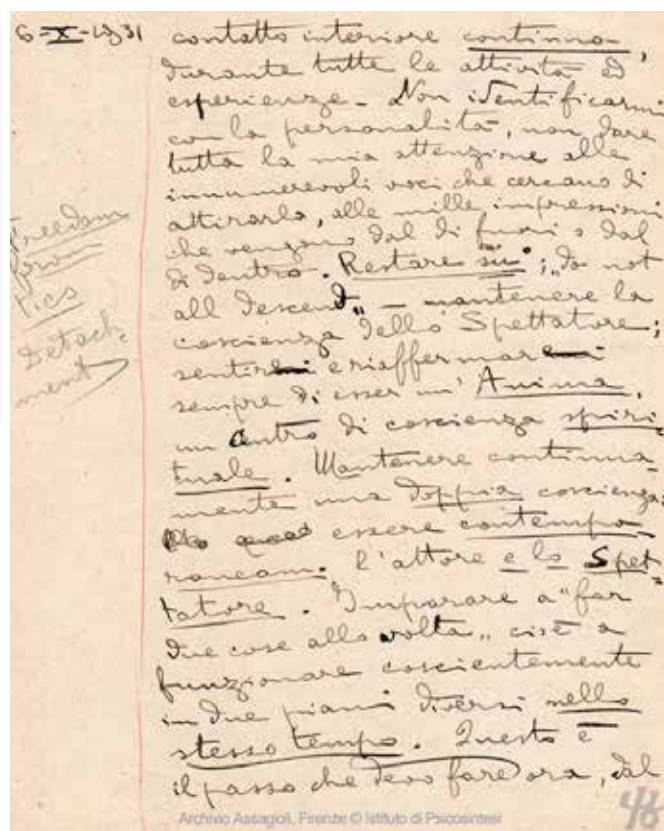 6-X-1931
contatto interiore continuo,
durante tutte le attività ed
esperienze. Non identificarmi
con la personalità, non dare
tutta la mia attenzione alle
innumerevoli voci che cercano di
attirarla, alle mille impressioni
che vengono dal di fuori o dal
di dentro. Restare su; „do not
all descend„ — mantenere la
coscienza dello Spettatore;
sentire e riaffermare
sempre di esser un' Anima,
un centro di coscienza spiri-
tuale. Mantenere continua-
mente una doppia coscienza.
essere contempo-
raneam. l'attore e lo Spet-
tatore. Imparare a "far
due cose alla volta„ cioè a
funzionare coscientemente
in due piani diversi nello
stesso tempo. Questo è
il passo che devo fare ora, dal
Freedom
from
Pics
Detach-
ment
Archivio Assagioli, Firenze © Istituto di Psicosintesi